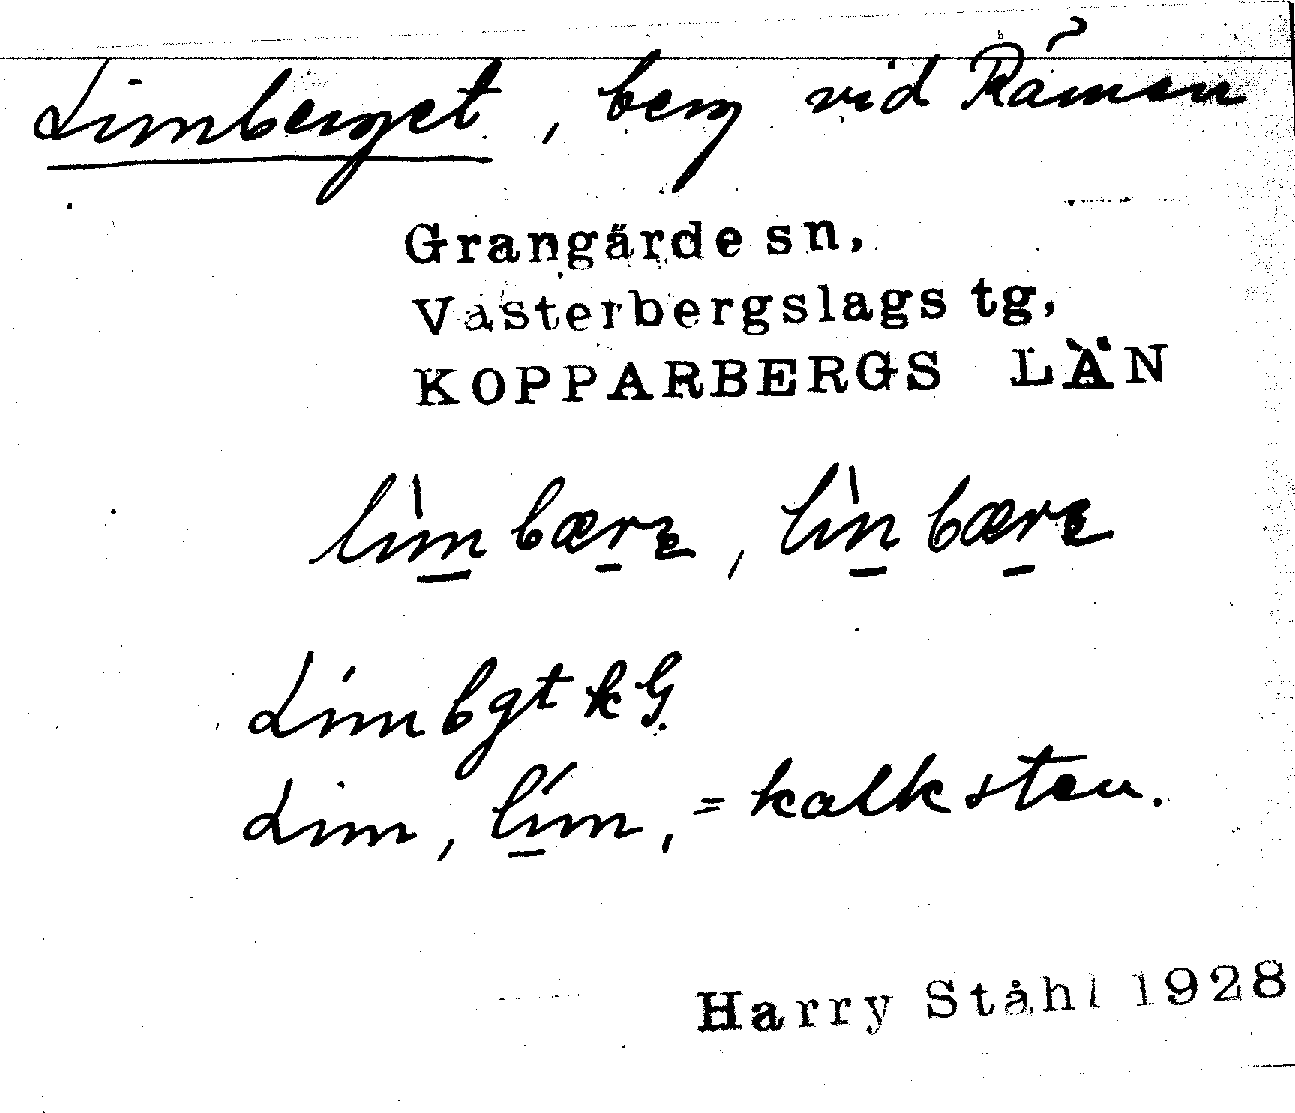 Limberget, berg vid Råmen
Grangärde sn,
Västerbergslags tg,
KOPPARBERGS LÄN
lìmbærɛ, lìnbærɛ
Limbgt kG.
Lim, lím, = kalksten.
Harry Ståhl 1928